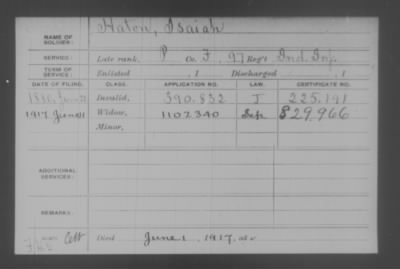 NAME OF SOLDIER: Haton, Isaiah
SERVICE: Late rank, P Co. F, 97 Reg't Ind. Inf.
TERM OF SERVICE: Enlisted , 1 Discharged , 1
DATE OF FILING. CLASS. APPLICATION NO. LAW. CERTIFICATE NO.
1880, Invalid, 390.832 J 225.191
1917 June 11 Widow, 1107.340 829.966
Minor,
ADDITIONAL SERVICES:
REMARKS:
Died June 1, 1917,